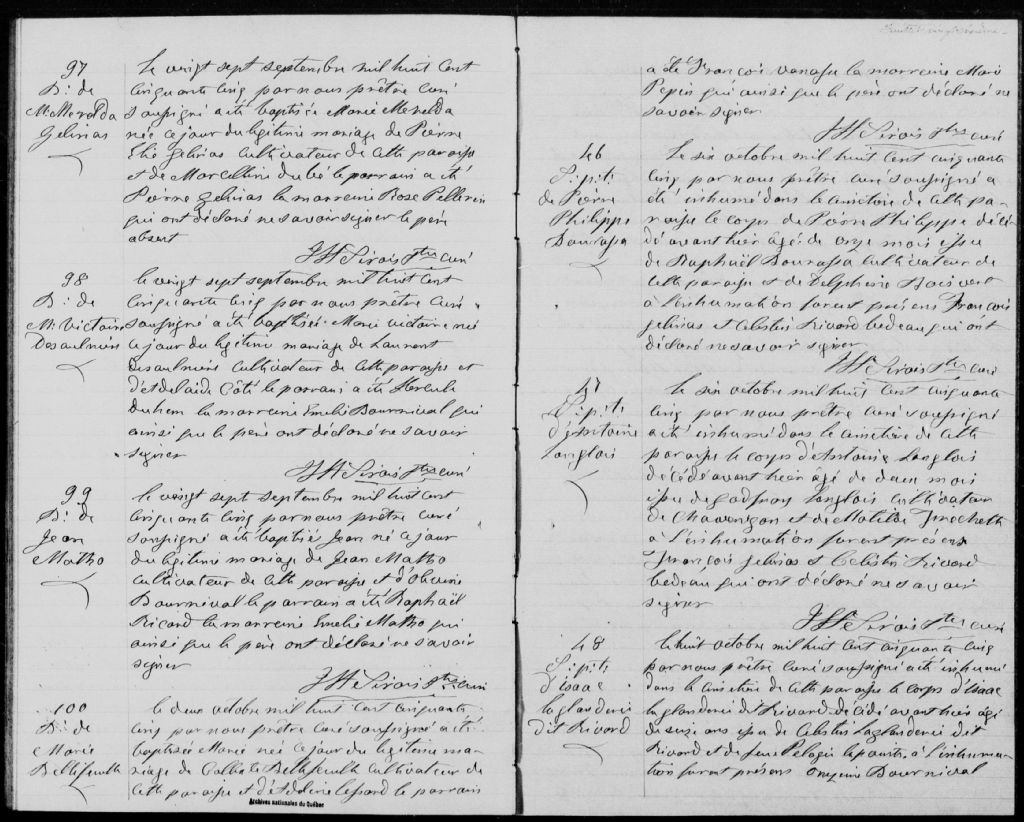 97
B: de
M: Merelda
Gelinas
le vingt sept septembre mil huit cent
cinquante cinq par nous prêtre curé
soussigné a été baptisée Marie Merelda
née ce jour du légitime mariage de Pierre
Elie Gelinas cultivateur de cette paroisse
et de Marcelline Dubé le parrain a été
Pierre Gelinas la marreine Rose Pellerin
qui ont déclaré ne savoir signer le père
absent
JH Sirois Ptre curé
98
B: de
M: Victoire
Desaulniers
le vingt sept septembre mil huit cent
cinquante cinq par nous prêtre curé
soussigné a été baptisée Marie Victoire née
ce jour du légitime mariage de Laurent
Desaulniers cultivateur de cette paroisse et
d'Adelaide Côté le parrain a été Hercule
Duhem la marreine Emelie Bournival qui
ainsi que le père ont déclaré ne savoir
signer
JH Sirois Ptre curé
99
B: de
Jean
Matho
le vingt sept septembre mil huit cent
cinquante cinq par nous prêtre curé
soussigné a été baptisé Jean né ce jour
du légitime mariage de Jean Matho
cultivateur de cette paroisse et d'Olivine
Bournival le parrain a été Raphaël
Ricard la marreine Emelie Matho qui
ainsi que le père ont déclaré ne savoir
signer
JH Sirois Ptre curé
100
B: de
Marie
Bellefeuille
le deux octobre mil huit cent cinquante
cinq par nous prêtre curé soussigné a été
baptisée Marie née ce jour du légitime ma-
riage de Bellefeuille cultivateur de
cette paroisse et d'Adeline Lessard le parrain
Archives nationales du Québec
a été François Vanasse la marreine Marie
Pepin qui ainsi que le père ont déclaré ne
savoir signer
JH Sirois Ptre curé
46
S: p: ti
de Pierre
Philippe
Bourassa
Le six octobre mil huit cent cinquante
cinq par nous prêtre curé soussigné a
été inhumé dans le cimetière de cette pa-
roisse le corps de Pierre Philippe décé-
dé avant hier âgé de onze mois issu
de Raphaël Bourassa cultivateur de
cette paroisse et de Delphine Boisvert
à l'inhumation furent présens François
Gelinas et Celestin Rivard bedeau qui ont
déclaré ne savoir signer
JH Sirois Ptre curé
47
S: p: ti
d'Antoine
Langlois
le six octobre mil huit cent cinquante
cinq par nous prêtre curé soussigné
a été inhumé dans le cimetière de cette
paroisse le corps d'Antoine Langlois
décédé avant hier âgé de deux mois
issu de Godfroy Langlois cultivateur
de et de Matilde Frechette
à l'inhumation furent présens
François Gelinas et Celestin Rivard
bedeau qui ont déclaré ne savoir
signer
JH Sirois Ptre curé
48
S: p: ti
d'Isaac
Laglanderie
dit Rivard
le huit octobre mil huit cent cinquante cinq
par nous prêtre curé soussigné a été inhumé
dans le cimetière de cette paroisse le corps d'Isaac
Laglanderie dit Rivard décédé avant hier âgé
de seize ans issu de Celestin Laglanderie dit
Rivard et de feue Pelagie à l'inhuma-
tion furent présens Onezime Bournival